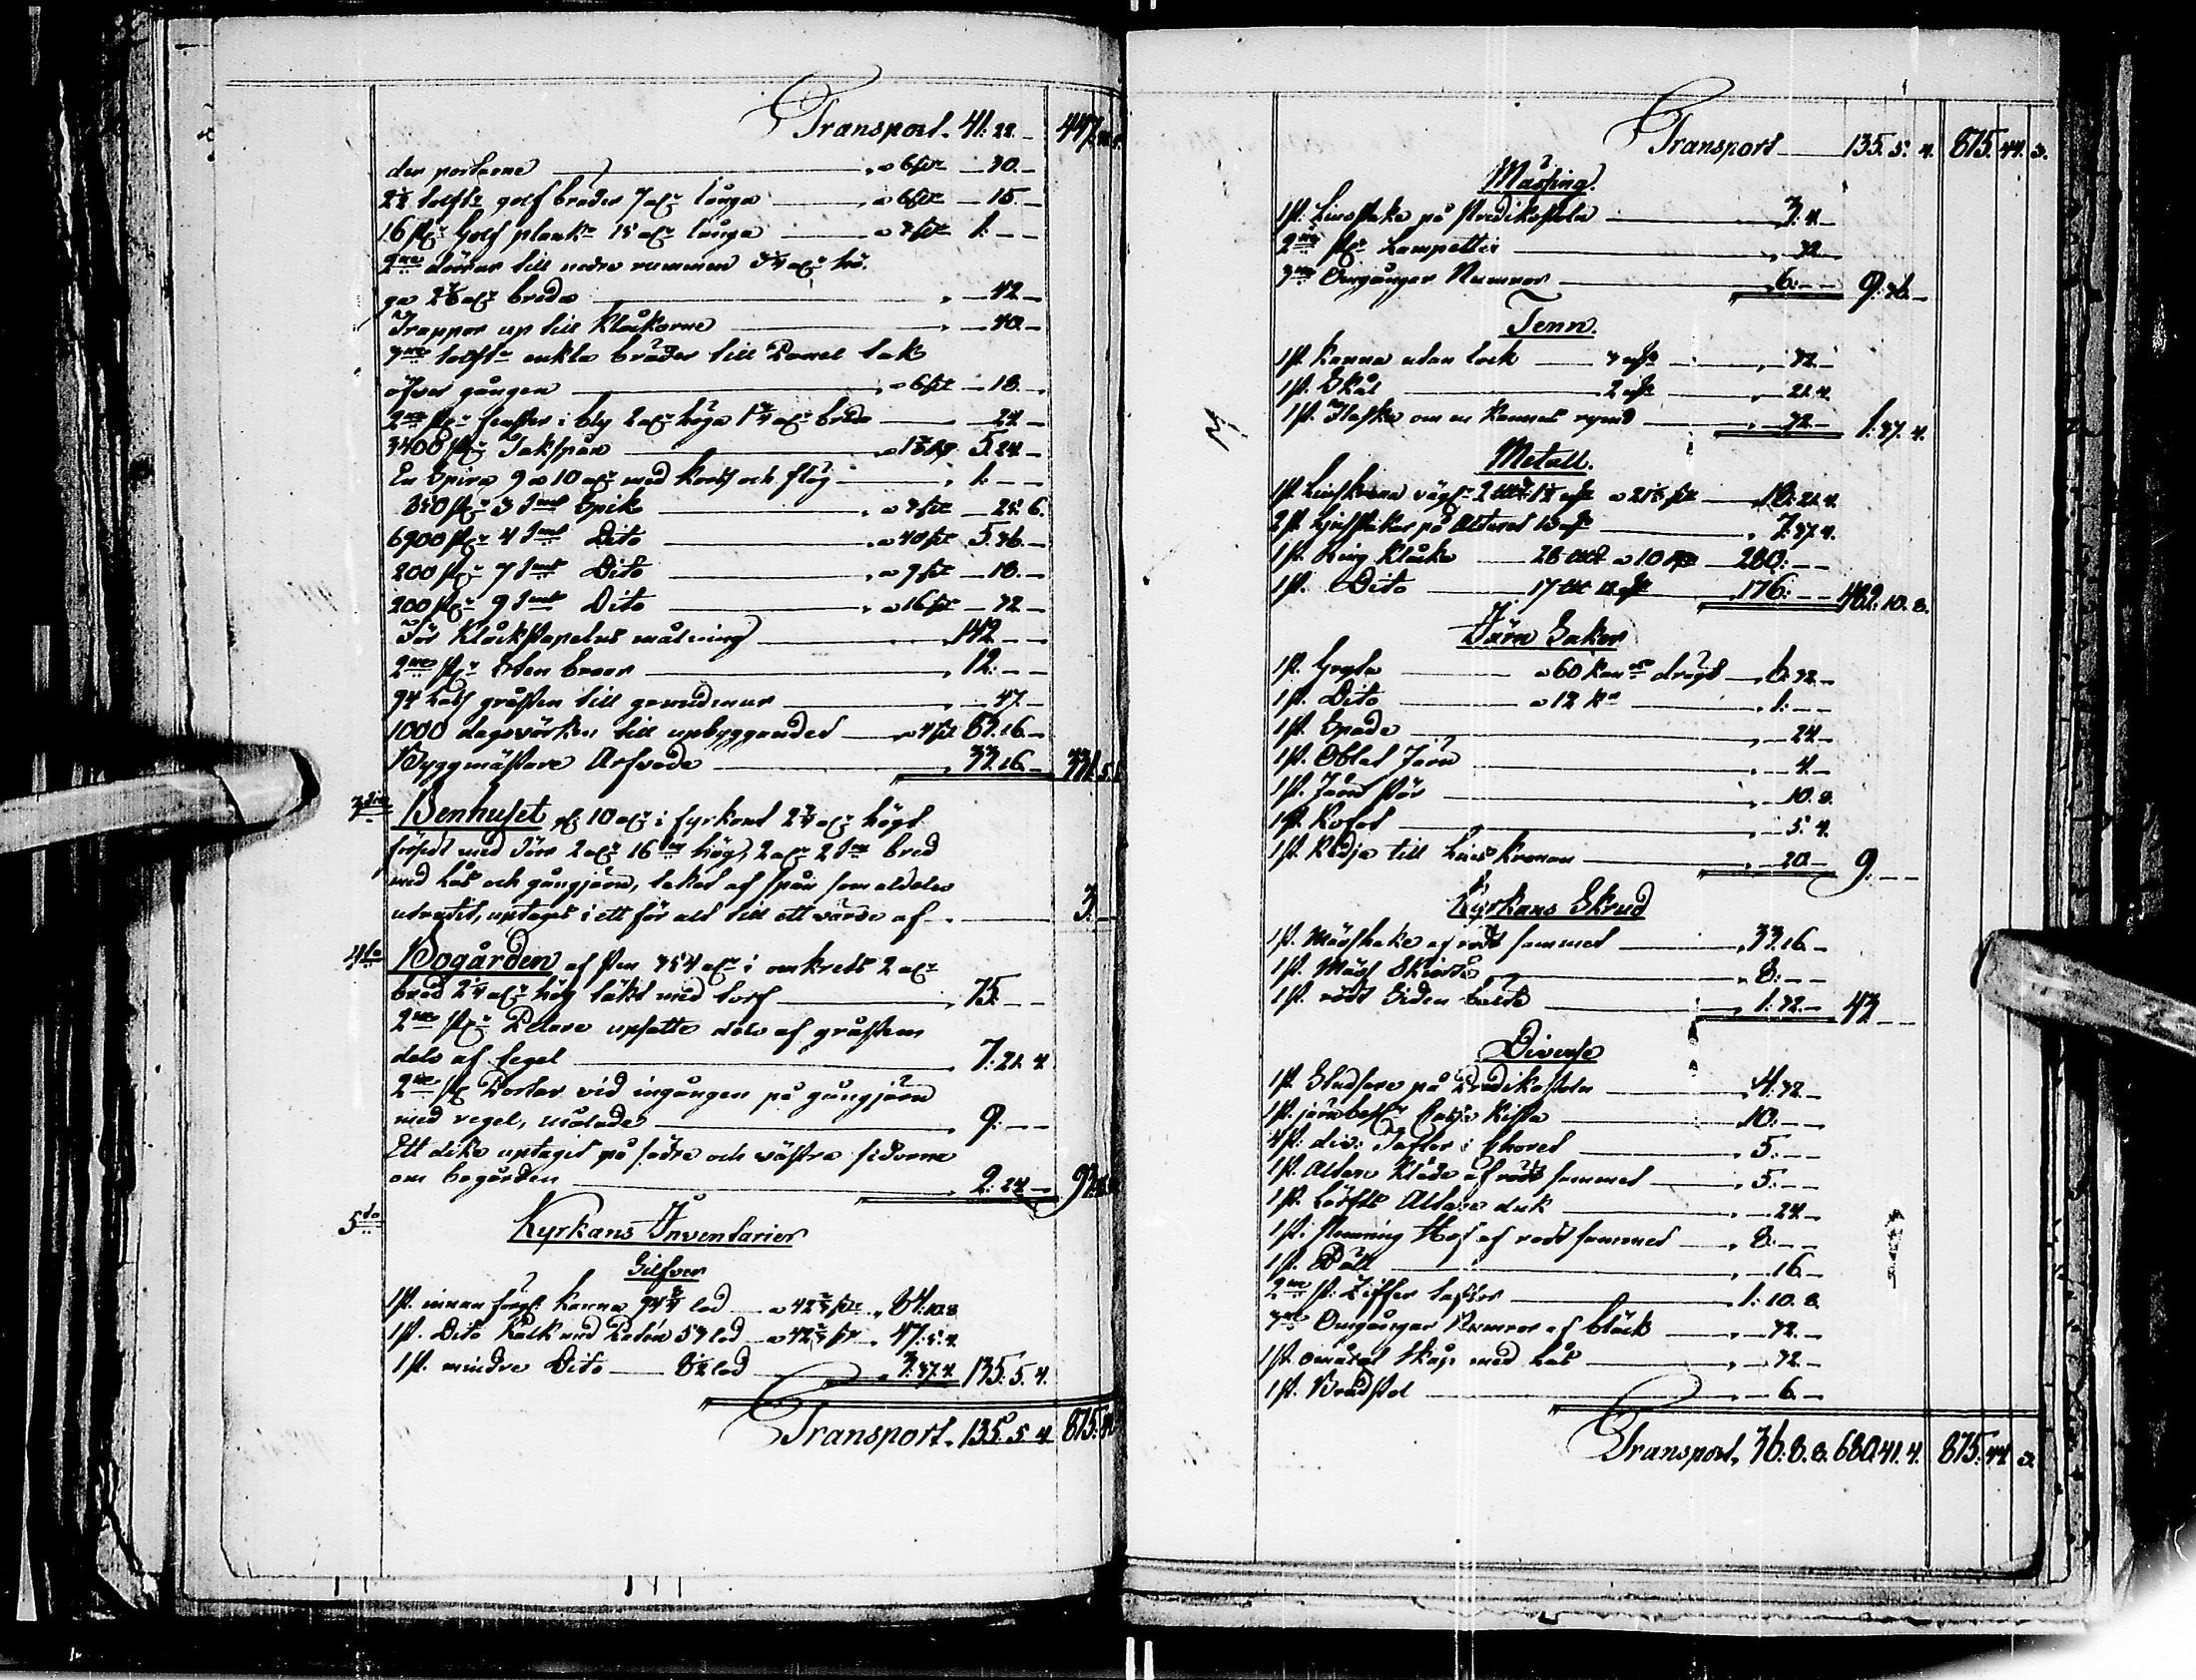 Transport. 41: 22. — 447.
der portarne — a 6 sk — 30. —
2½ tolftr golf bräder 7 alnr långa — a 6 sk — 15. —
16 str Golf plankr 15 alnr långa — a 3 sk 1: — —
2ne dörrar till nedre rummen 3¼ alnr hö-
ga alnr breda — 42 —
Trappor up till Klåckorne — 40. —
3ne tolftr enkla bräder till Panel tak
öfver gången — a 6 sk — 18. —
2ne str fenster i bly 2 alnr höga 1¾ alnr breda — 24. —
3400 str Takspån — 5. 24. —
En Spira 9 a 10 alnr med Kors och flöj — 1: — —
350 str 3 tums Spik — a 3 sk — 25: 6.
6900 str 4 tums Dito — a 40 sk 5. 36. —
200 str 7 tums Dito — a 9 sk — 18. —
200 str 9 tums Dito — a 16 sk — 32 —
För Klåckstapelns målning — 142 — —
2ne str Sten broar — 12: — —
94 Lass gråsten till grundmur — 47. —
1000 dagsvärken till upbyggandet — a 4 sk 83. 16. —
Byggmästare Arfvode — 33. 16. — 331. 5.
3dio Benhuset 10 alnr i fyrkant 2¾ alnr högt
försedt med dörr 2 alnr 16 tum hög, 2 alnr 2 tum bred
med lås och gångjärn, taket af spån som aldeles
utrutit, uptages i ett för alt till ett värde af — 3. —
4to Bogården af sten 354 alnr i omkrets 2 alnr
bred 2¼ alnr hög täkt med torf — 75. — —
2ne str Pelare upsatte dels af gråsten
dels af tegel — 7. 21. 4.
2ne st Portar vid ingången på gångjärn
med regel, målade — 9: — —
Ett dike uptagit på södre och västra sidorne
om bogården — 2: 24. —
5to Kyrkans Inventarier
Silfver
1 st. innan förgt. Kanna lod — 84: 10. 8.
1 st. Dito Kalk med Paten 53 lod — 47: 5. 4.
1 st. mindre Dito — 8½ lod — 3. 37. 4. 135: 5. 4.
Transport. 135. 5. 4. 875: 44
Transport — 135. 5. 4. 875. 44. 3.
Mässing.
1 st. Liusstake på Predikstoln — 3: 4. —
2ne str Lampetter — 32 —
3ne Omgångar Nummer — 6: — — 9: 36. —
Tenn.
1 st. Kanna utan lock — 32. —
1 st. Skål — 21. 4.
1 st. Flaska om en Kannas rymd — 32. — 1. 37. 4.
Metall.
1 st. Liuskrona — 18: 21. 4.
2 st. Liusstakar på Altaret — 7. 37. 4.
1 st. Ring Klåcka — 280: — —
1 st. Dito — 176: — — 482: 10. 8.
Järn Saker
1 st. Gryta — a 60 Kanors drägt — 6: 32. —
1 st. Dito — a 12 Kr — 1: — —
1 st. Spade — 24 —
1 st. Oblat Järn — 4. —
1 st. Järn stör — 10. 8.
1 st. Kofot — 5. 4.
1 st. Kedja till Lius Kronan — 20 — 9. — —
Kyrkans Skrud
1 st. Mässhake af rödt sammet — 33. 16. —
1 st. Mäss Skiorta — 8: — —
1 st. rödt Siden bälte — 1: 32. — 43 — —
Diverse
1 st. Stundsare på Predikostoln — 4: 32. —
1 st. järnbesl. Cassa Kista — 10: — —
4 st. div: Taflor i Choret — 5. — —
1 st. Altare Kläde af rödt sammet — 5: — —
1 st. Lärfts Altare duk — 24 —
1 st. Messing Haf af rödt sammet — 8: — —
1 st. Båll — 16. —
2ne st. Ziffer taflor — 1: 10. 8.
3ne Omgångar Numror af bläck — 32. —
1 st. omålat skåp med lås — 32. —
1 st. Brudstol — 6. —
Transport. 36. 8. 8. 680. 41. 4. 875. 44 3.